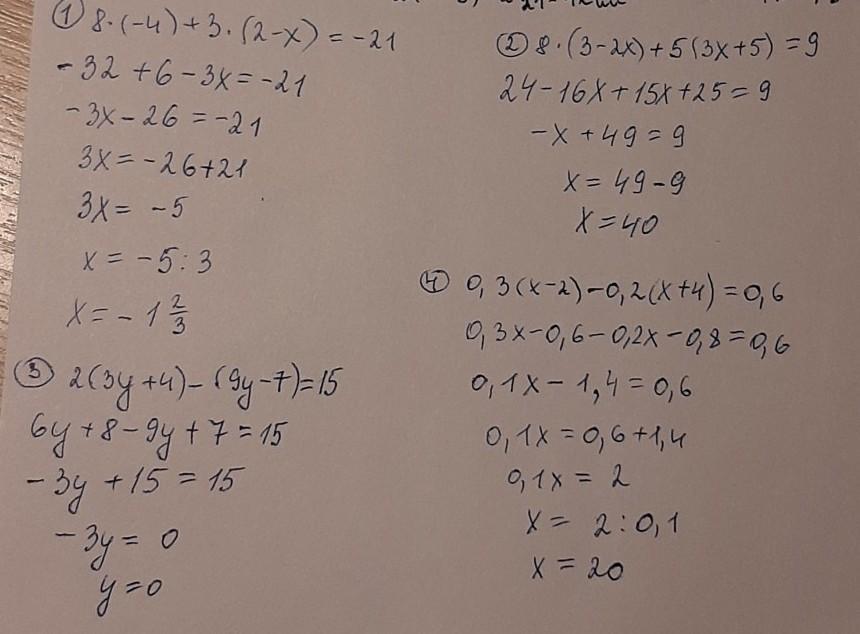 ① 8·(-4)+3·(2-x)=-21
-32+6-3x=-21
-3x-26=-21
3x=-26+21
3x=-5
x=-5:3
x=-1 2/3
② 8·(3-2x)+5(3x+5)=9
24-16x+15x+25=9
-x+49=9
x=49-9
x=40
③ 2(3y+4)-(9y-7)=15
6y+8-9y+7=15
-3y+15=15
-3y=0
y=0
④ 0,3(x-2)-0,2(x+4)=0,6
0,3x-0,6-0,2x-0,8=0,6
0,1x-1,4=0,6
0,1x=0,6+1,4
0,1x=2
x=2:0,1
x=20